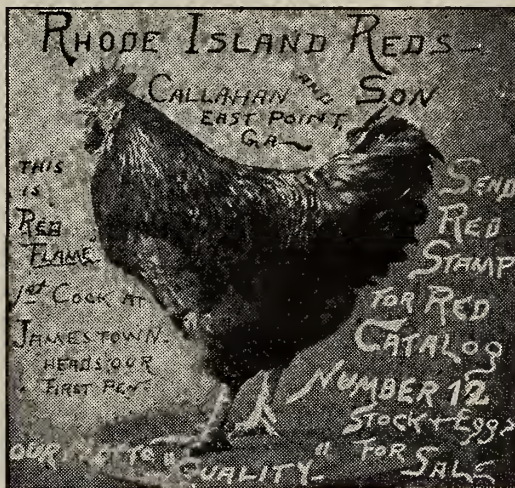 RHODE ISLAND REDS—
CALLAHAN AND SON
EAST POINT,
GA—
THIS
IS
"RED
FLAME"
1st COCK AT
JAMESTOWN-
HEADS OUR
FIRST PEN
SEND
RED
STAMP
FOR RED
CATALOG
NUMBER 12
STOCK & EGGS
FOR SALE
OUR MOTTO "QUALITY"